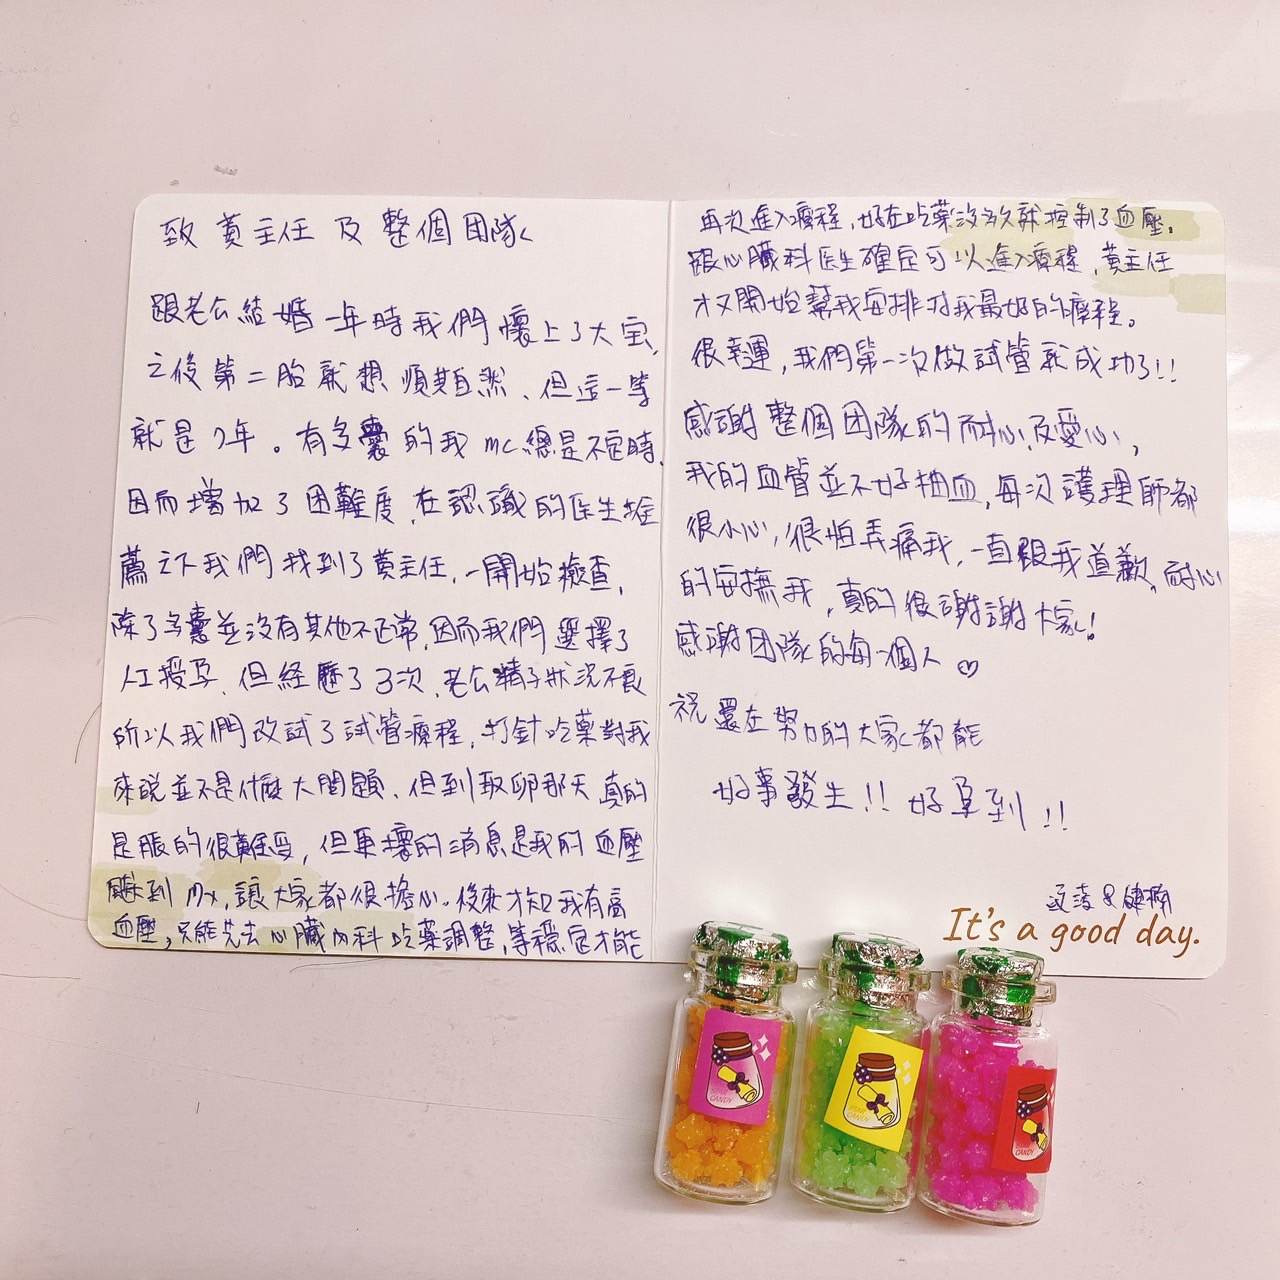 致 黃主任 及 整個團隊
跟老公結婚一年時我們懷上了大宝,
之後第二胎就想順其自然、但這一等
就是7年。有多囊的我mc總是不定時、
因而增加了困難度,在認識的医生推
薦之下我們找到了黃主任,一開始檢查,
除了多囊並沒有其他不正常,因而我們選擇了
人工授孕、但経歷了3次、老公精子狀況不良
所以我們改試了試管療程,打針吃藥對我
來說並不是什麼大問題、但到取卵那天真的
是脹的很難受,但更壞的消息是我的血壓
飇到 讓大家都很擔心、後來才知我有高
血壓,只能先去心臟內科吃藥調整,等穩定才能
再次進入療程,好在吃藥沒多久就控制了血壓。
跟心臟科医生確定可以進入療程,黃主任
才又開始幫我安排對我最好的療程。
很幸運,我們第一次做試管就成功了!!
感謝整個团隊的耐心及愛心,
我的血管並不好抽血,每次護理師都
很小心,很怕弄痛我,一直跟我道歉,耐心
的安撫我,真的很謝謝大家!
感謝团隊的每一個人♡
祝還在努力的大家都能
好事發生!! 好孕到!!
&
It's a good day.
CANDY
CANDY
CANDY